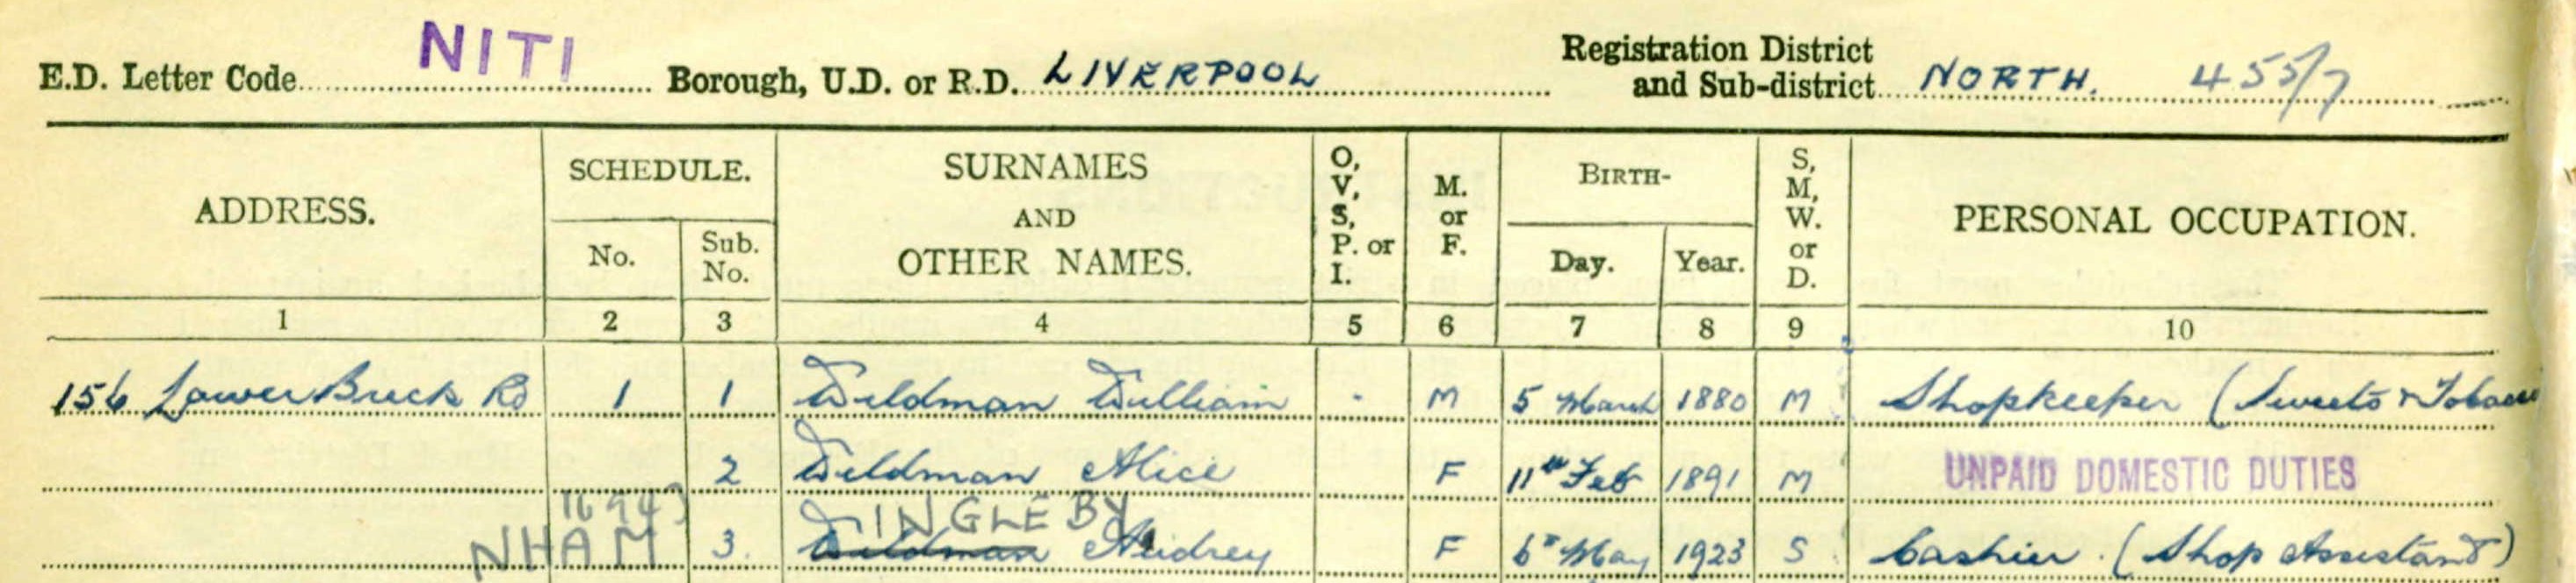 E.D. Letter Code NITI Borough, U.D. or R.D. LIVERPOOL Registration District and Sub-district NORTH. 455/7
ADDRESS. SCHEDULE. No. Sub. No. SURNAMES AND OTHER NAMES. O, V, S, P. or I. M. or F. BIRTH- Day. Year. S, M, W. or D. PERSONAL OCCUPATION.
1 2 3 4 5 6 7 8 9 10
156 Lower Breck Rd 1 1 Wildman William - M 5 March 1880 M Shopkeeper (Sweets & Tobacco
2 Wildman Alice F 11th Feb 1891 M UNPAID DOMESTIC DUTIES
INGLEBY
NHAM 3. Wildman Audrey F 6th May 1923 S Cashier. (Shop Assistant)